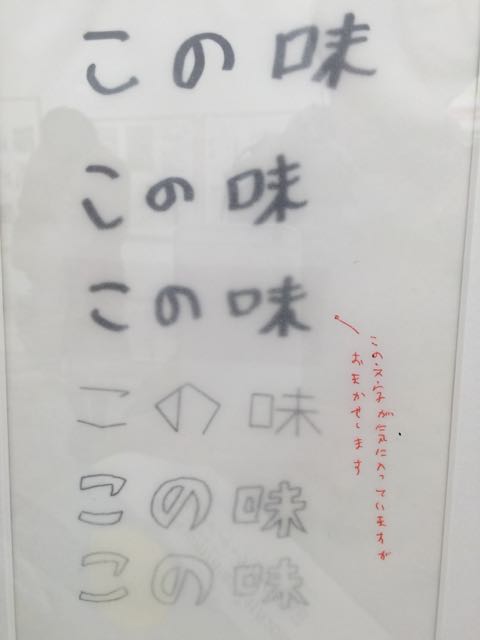 この味
この味
この味
この味
この味
この味
この文字が気に入っていますが
おまかせします